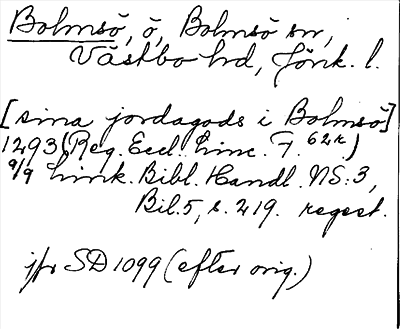 Bolmsö, ö, Bolmsö sn,
Västbo hd, Jönk. l.
[sina jordagods i Bolmsö]
1293 (Reg. Eccl. Linc. F. 62r)
9/9 Link. Bibl. Handl. NS:3,
Bil. 5, s. 219. regest.
jfr SD 1099 (efter orig.)